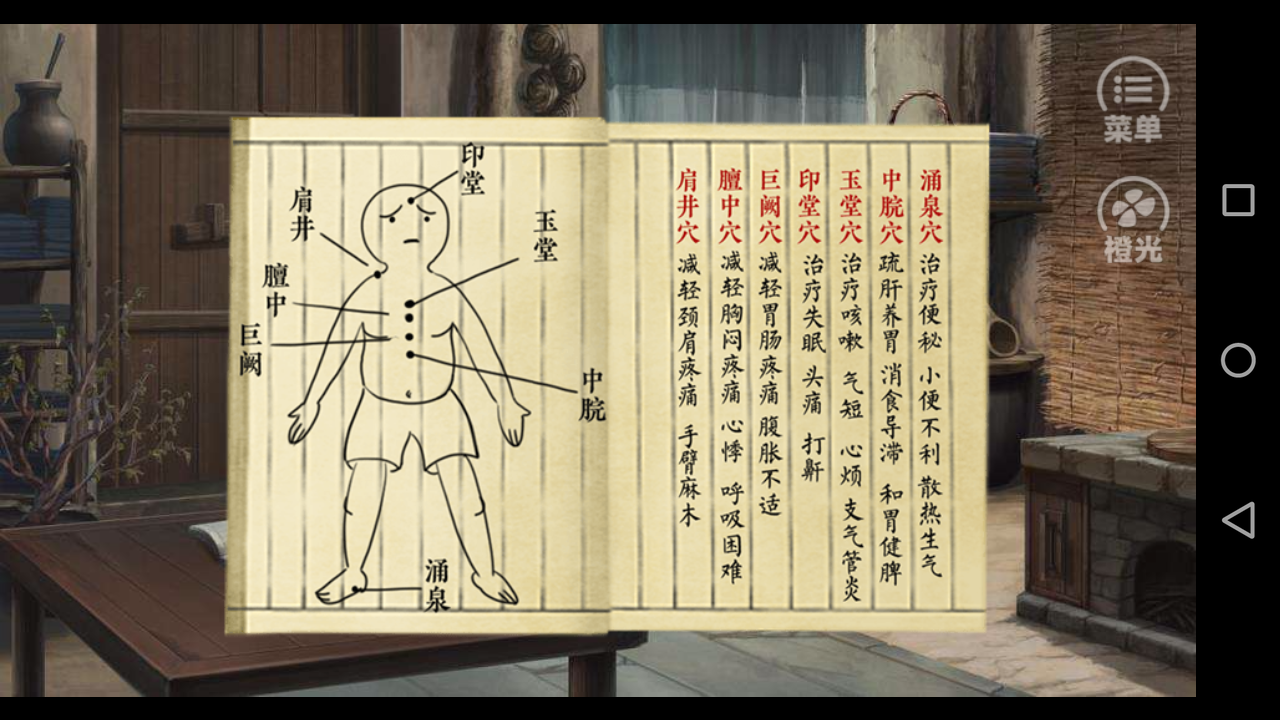 印堂
肩井
玉堂
膻中
巨阙
中脘
涌泉
涌泉穴 治疗便秘 小便不利 散热生气
中脘穴 疏肝养胃 消食导滞 和胃健脾
玉堂穴 治疗咳嗽 气短 心烦 支气管炎
印堂穴 治疗失眠 头痛 打鼾
巨阙穴 减轻胃肠疼痛 腹胀不适
膻中穴 减轻胸闷疼痛 心悸 呼吸困难
肩井穴 减轻颈肩疼痛 手臂麻木
菜单
橙光